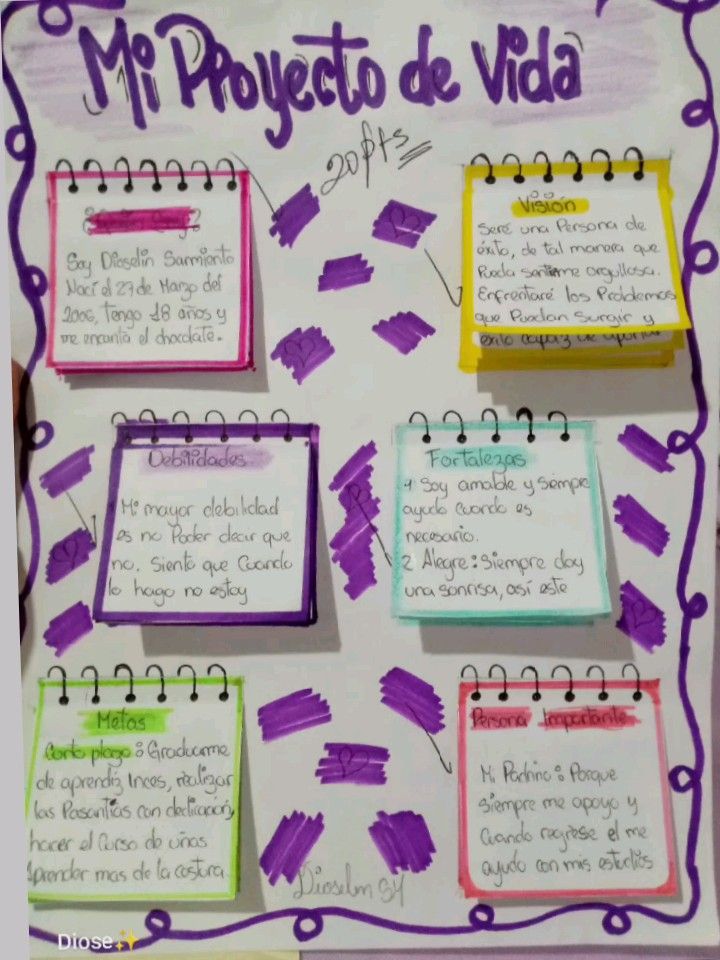 Mi Proyecto de Vida
20pts
Soy Dioselin Sarmiento
Nací el 27 de Marzo del
2006, tengo 18 años y
me encanta el chocolate.
Visión
Seré una Persona de
éxito, de tal manera que
Pueda sentirme orgullosa.
Enfrentaré los Problemas
que Puedan Surgir y
éxito capaz de aportar
Debilidades
1 Mi mayor debilidad
es no Poder decir que
no. Siento que Cuando
lo hago no estoy
Fortalezas
1 Soy amable y Siempre
ayudo Cuando es
necesario.
2 Alegre: Siempre doy
una sonrisa, así este
Metas
Corto plazo: Graduarme
de aprendiz Inces, realizar
las Pasantías con dedicación,
hacer el Curso de uñas
Aprender mas de la costura.
Persona Importante
Mi Padrino: Porque
Siempre me apoyo y
Cuando regrese el me
ayudo con mis estudios
Dioselin
Diose✨